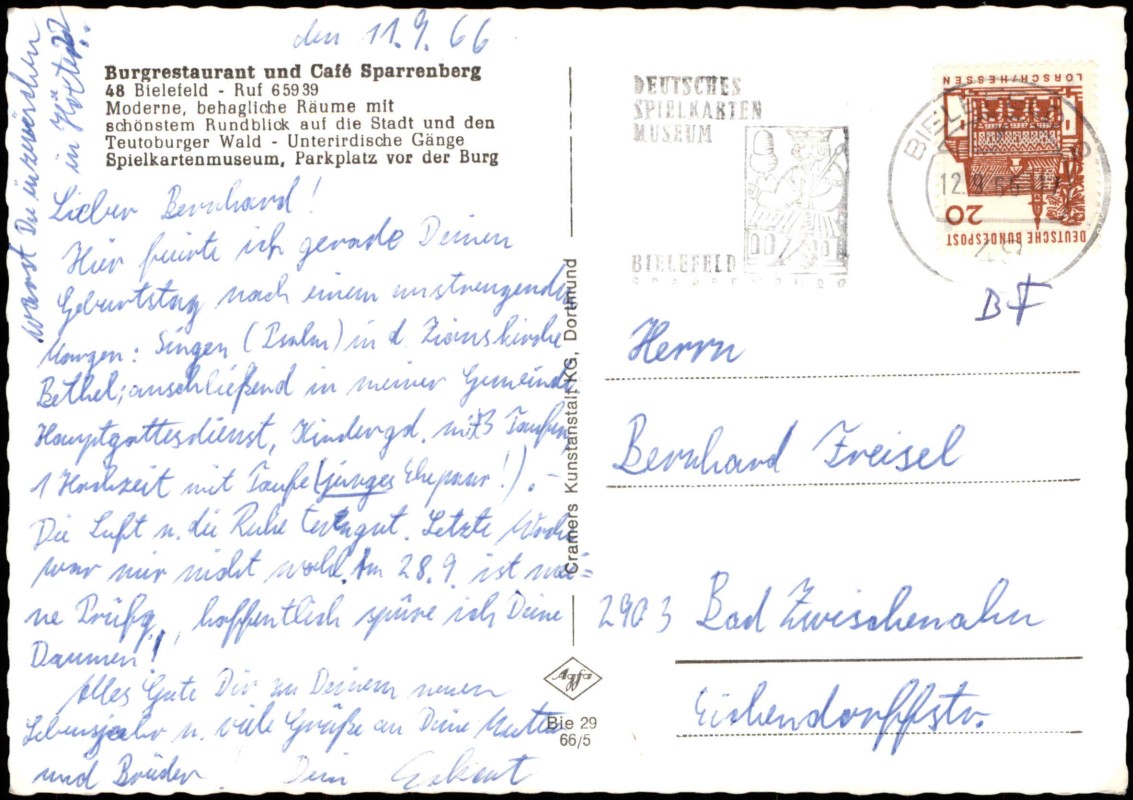 den 11.9.66
Burgrestaurant und Café Sparrenberg
48 Bielefeld - Ruf 65939
Moderne, behagliche Räume mit
schönstem Rundblick auf die Stadt und den
Teutoburger Wald - Unterirdische Gänge
Spielkartenmuseum, Parkplatz vor der Burg
Lieber Bernhard!
Hier feierte ich gerade Deinen
Geburtstag nach einem anstrengenden
Morgen: Singen (Psalm) in d. Zionskirche
Bethel; anschließend in meiner Gemeinde
Hauptgottesdienst, Kindergd. mit 3 Taufen
1 Hochzeit mit Taufe (junges Ehepaar!). -
Die Luft u. die Ruhe tut gut. Letzte Woche
war mir nicht wohl. Am 28.9. ist mei=
ne Prüfg., hoffentlich spüre ich Deine
Daumen!
Alles Gute Dir zu Deinem neuen
Lebensjahr u. viele Grüße an Deine Mutter
und Brüder! Dein
warst Du inzwischen
in Höxter??
Cramers Kunstanstalt KG, Dortmund
Agfa
Bie 29
66/5
DEUTSCHES
SPIELKARTEN
MUSEUM
BIELEFELD
SPARRENBURG
BIELEFELD
12.9.66
LORSCH/HESSEN
20
DEUTSCHE BUNDESPOST
BF
Herrn
Bernhard Freisel
2903 Bad Zwischenahn
Eichendorffstr.